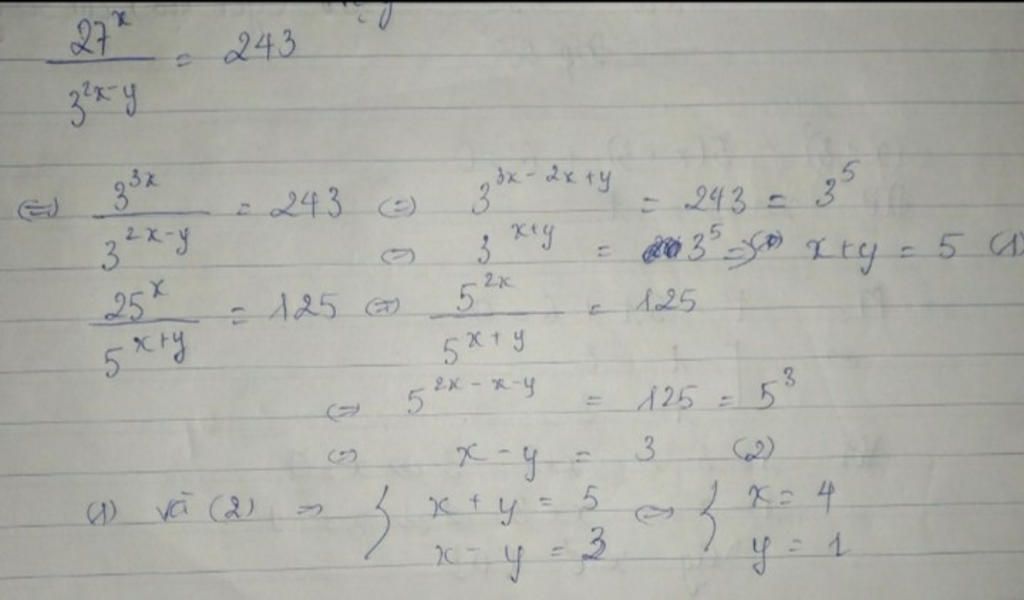 27^x / 3^{2x-y} = 243
⇔ 3^{3x} / 3^{2x-y} = 243 ⇔ 3^{3x-2x+y} = 243 = 3^5
⇔ 3^{x+y} = 3^5 ⇒ x+y = 5 (1)
25^x / 5^{x+y} = 125 ⇔ 5^{2x} / 5^{x+y} = 125
⇔ 5^{2x-x-y} = 125 = 5^3
⇔ x - y = 3 (2)
(1) và (2) ⇒ { x + y = 5 ⇔ { x = 4
x - y = 3 y = 1